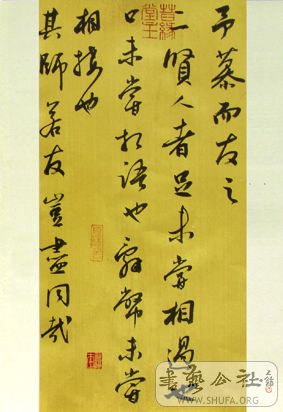 予慕而友之
二賢人者足未嘗相過
口未嘗相語也辭幣未嘗
相接也
其師若友豈盡同哉
書藝公社
WWW.SHUFA.ORG